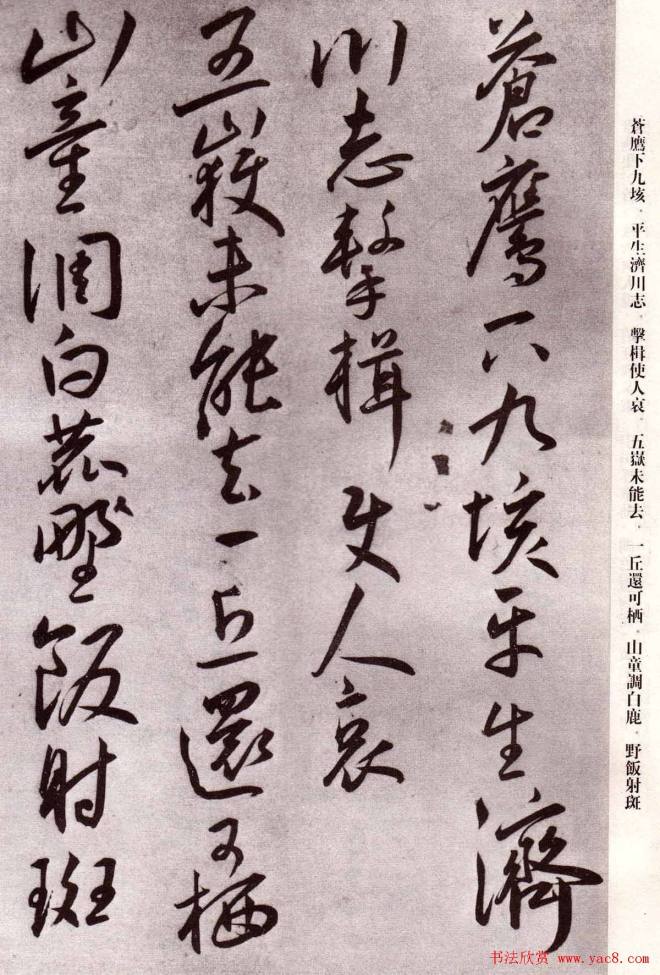 蒼鷹下九垓平生濟
川志擊楫使人哀
五嶽未能去一丘還可栖
山童調白鹿野飯射斑
蒼鷹下九垓。平生濟川志。擊楫使人哀。五嶽未能去。一丘還可栖。山童調白鹿。野飯射斑
书法欣赏 www.yac8.com